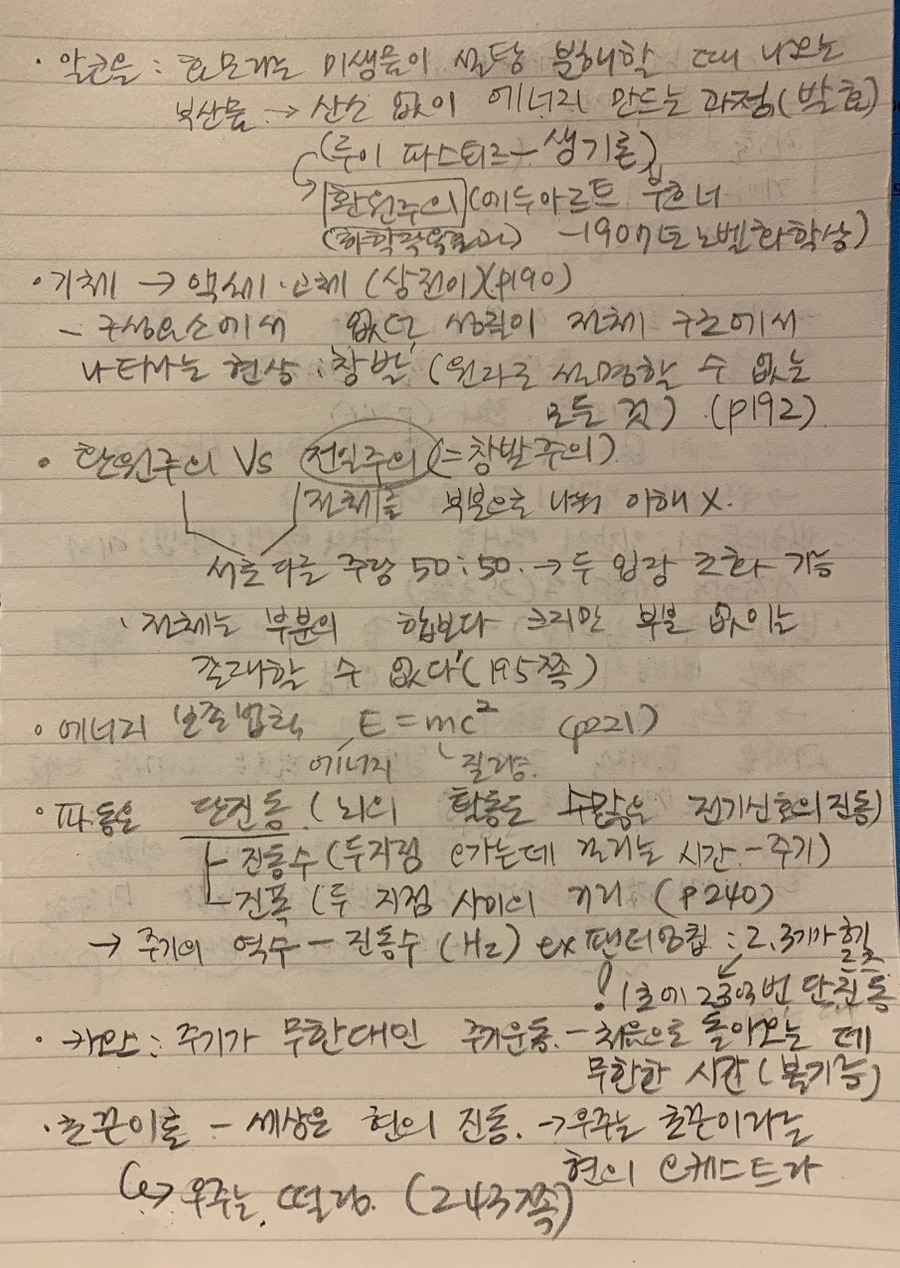 · 알코올 : 효모라는 미생물이 설탕 분해할 때 나오는
부산물 → 산소 없이 에너지 만드는 과정(발효)
(루이 파스퇴르 - 생기론)
환원주의 (에두아르트 부흐너
(화학작용결과) - 1907년 노벨화학상)
· 기체 → 액체·고체 (상전이)(p190)
- 구성요소에서 없던 성질이 전체 구조에서
나타나는 현상 : '창발' (원자로 설명할 수 없는
모든 것) (p192)
· 환원주의 Vs 전일주의 (=창발주의)
전체를 부분으로 나눠 이해 X.
서로 다른 주장 50:50. → 두 입장 조화 가능
'전체는 부분의 합보다 크지만 부분 없이는
존재할 수 없다'(195쪽)
· 에너지 보존법칙 E=mc² (p221)
에너지 질량
· 파동은 단진동 (뇌의 활동은 수많은 전기신호의 진동)
진동수 (두지점 오가는데 걸리는 시간 - 주기)
진폭 (두 지점 사이의 거리 (p240)
→ 주기의 역수 - 진동수 (Hz) ex 팬티엄칩 : 2.3기가 헤르츠
1초에 23억번 단진동
· 카오스 : 주기가 무한대인 주기운동. - 처음으로 돌아오는 데
무한한 시간 (불가능)
· 초끈이론 - 세상은 현의 진동. → 우주는 초끈이라는
현의 오케스트라
우주는 떨림. (243쪽)